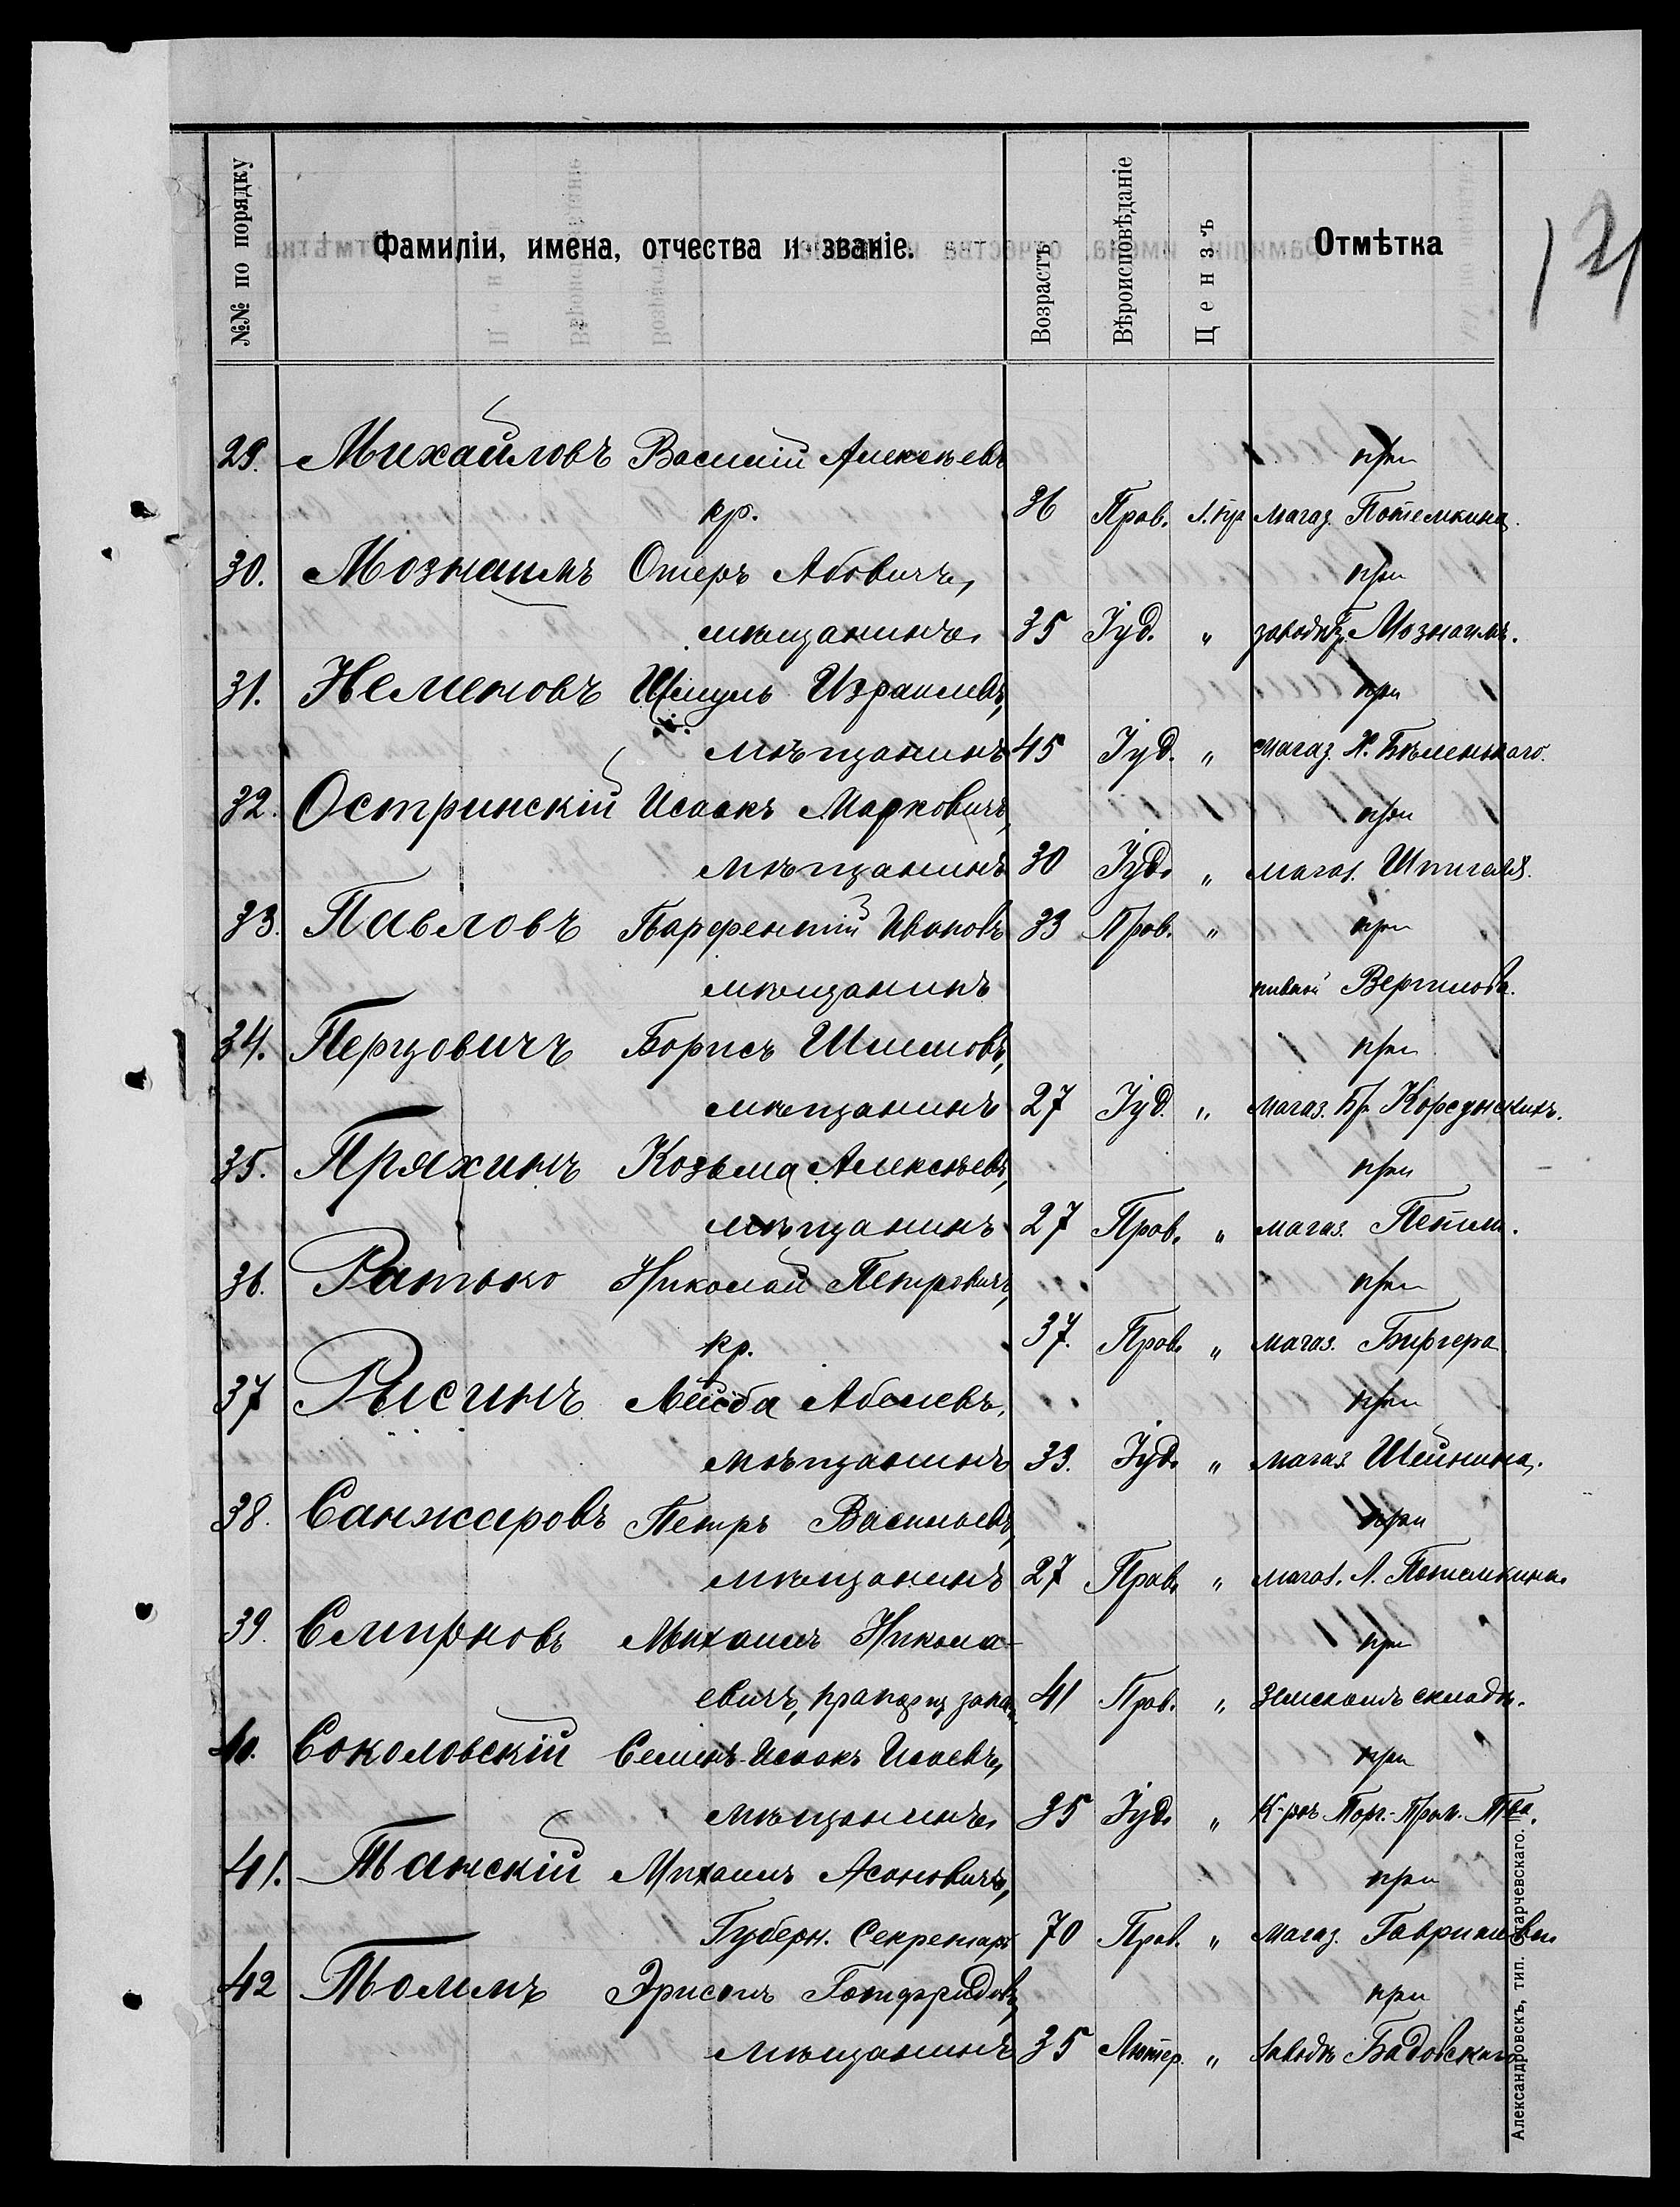 121
№№ по порядку
Фамиліи, имена, отчества и званіе.
Возрастъ
Вѣроисповѣданіе
Цензъ
Отмѣтка
29. Михайловъ Василій Алексѣевъ при
кр. 36 Прав. магаз. Потемкина.
30. Мознаимъ Отеръ Абовичъ, при
мѣщанинъ. 35 Іуд. " заводѣ Бр. Мознаимъ.
31. Неменовъ Шмуль Израилевъ, при
мѣщанинъ 45 Іуд. " магаз. Х. Бѣленькаго.
32. Остринскій Исаакъ Марковичъ, при
мѣщанинъ 30 Іуд. " магаз. Шпигеля.
33. Павловъ Парфентій Ивановъ 33 Прав. " при
мѣщанинъ пивной
34. Перцовичъ Борисъ Шлимовъ, при
мѣщанинъ 27 Іуд. " магаз. Бр. Корсунскихъ.
35. Пряхинъ Козьма Алексѣевъ, при
мѣщанинъ 27 Прав. " магаз. Петили.
36. Ратько Николай Петровичъ, при
кр. 37. Прав. " магаз. Биргера
37 Рысинъ Лейба Абелевъ, при
мѣщанинъ 33. Іуд. " магаз. Шейнина.
38. Санжаровъ Петръ Васильевъ, при
мѣщанинъ 27 Прав. " магаз. Л. Потемкина.
39. Смирновъ Михаилъ Никола-
евичъ, прапорщ запа. 41 Прав. " при Земскомъ складѣ.
40. Соколовскій Семенъ-Исаакъ Исаевъ, при
мѣщанинъ. 35 Іуд. " К-рѣ Торг.-Пром. Т-ва.
41. Танскій Михаилъ Асоновичъ, при
Губерн. Секретарь 70 Прав. " магаз. Гавриловы
42 Толмъ Готфридовъ, при
мѣщанинъ 35 Лютер. " заводѣ Бадовскаго
Александровскъ, тип. Старчевскаго.